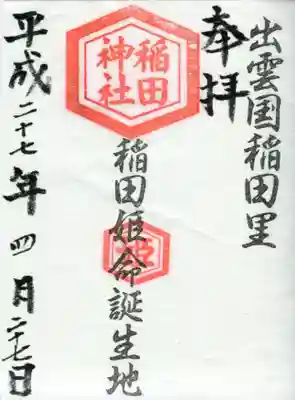 出雲国稲田里
奉拝
稲田神社
稲田姫命誕生地
姫
平成二十七年四月二十七日